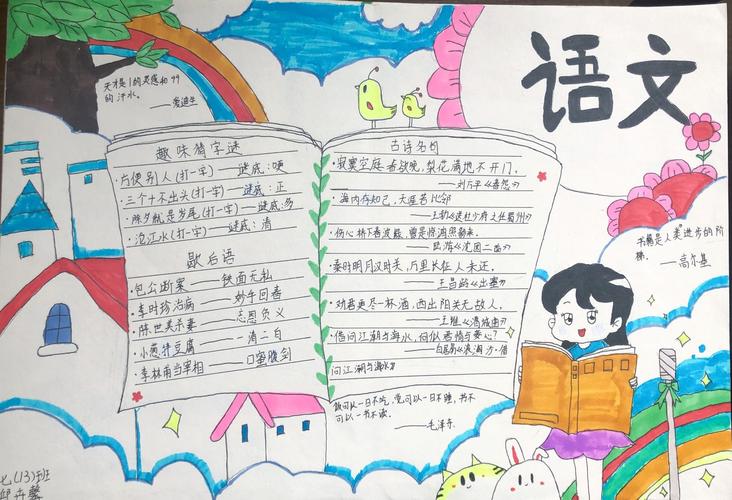 语文
天才是1的灵感和99
的汗水。
——爱迪生
趣味猜字谜
·方便别人(打一字)——谜底:哽
·三个十不出头(打一字)——谜底:正
·除夕就是岁尾(打一字)——谜底:多
·沧江水(打一字)——谜底:消
歇后语
·包公断案——铁面无私
·李时珍治病——妙手回春
·陈世美杀妻——忘恩负义
·小葱拌豆腐——清二白
·李林甫当宰相——口蜜腹剑
古诗名句
·寂寞空庭春欲晚,梨花满地不开门。
——刘方平《春怨》
·海内存知己,天涯若比邻
——王勃《送杜少府之任蜀州》
·伤心桥下春波绿,曾是惊鸿照影来。
——陆游《沈园二首》
·秦时明月汉时关,万里长征人未还。
——王昌龄《出塞》
·劝君更尽一杯酒,西出阳关无故人。
——王维《渭城曲》
·借问江潮与海水,何似君情与妾心?
——白居易《浪淘沙·借
问江潮与海水》
书籍是人类进步的阶
梯。
——高尔基
饭可以一日不吃,觉可以一日不睡,书不
可以一日不读。
——毛泽东
七(13)班